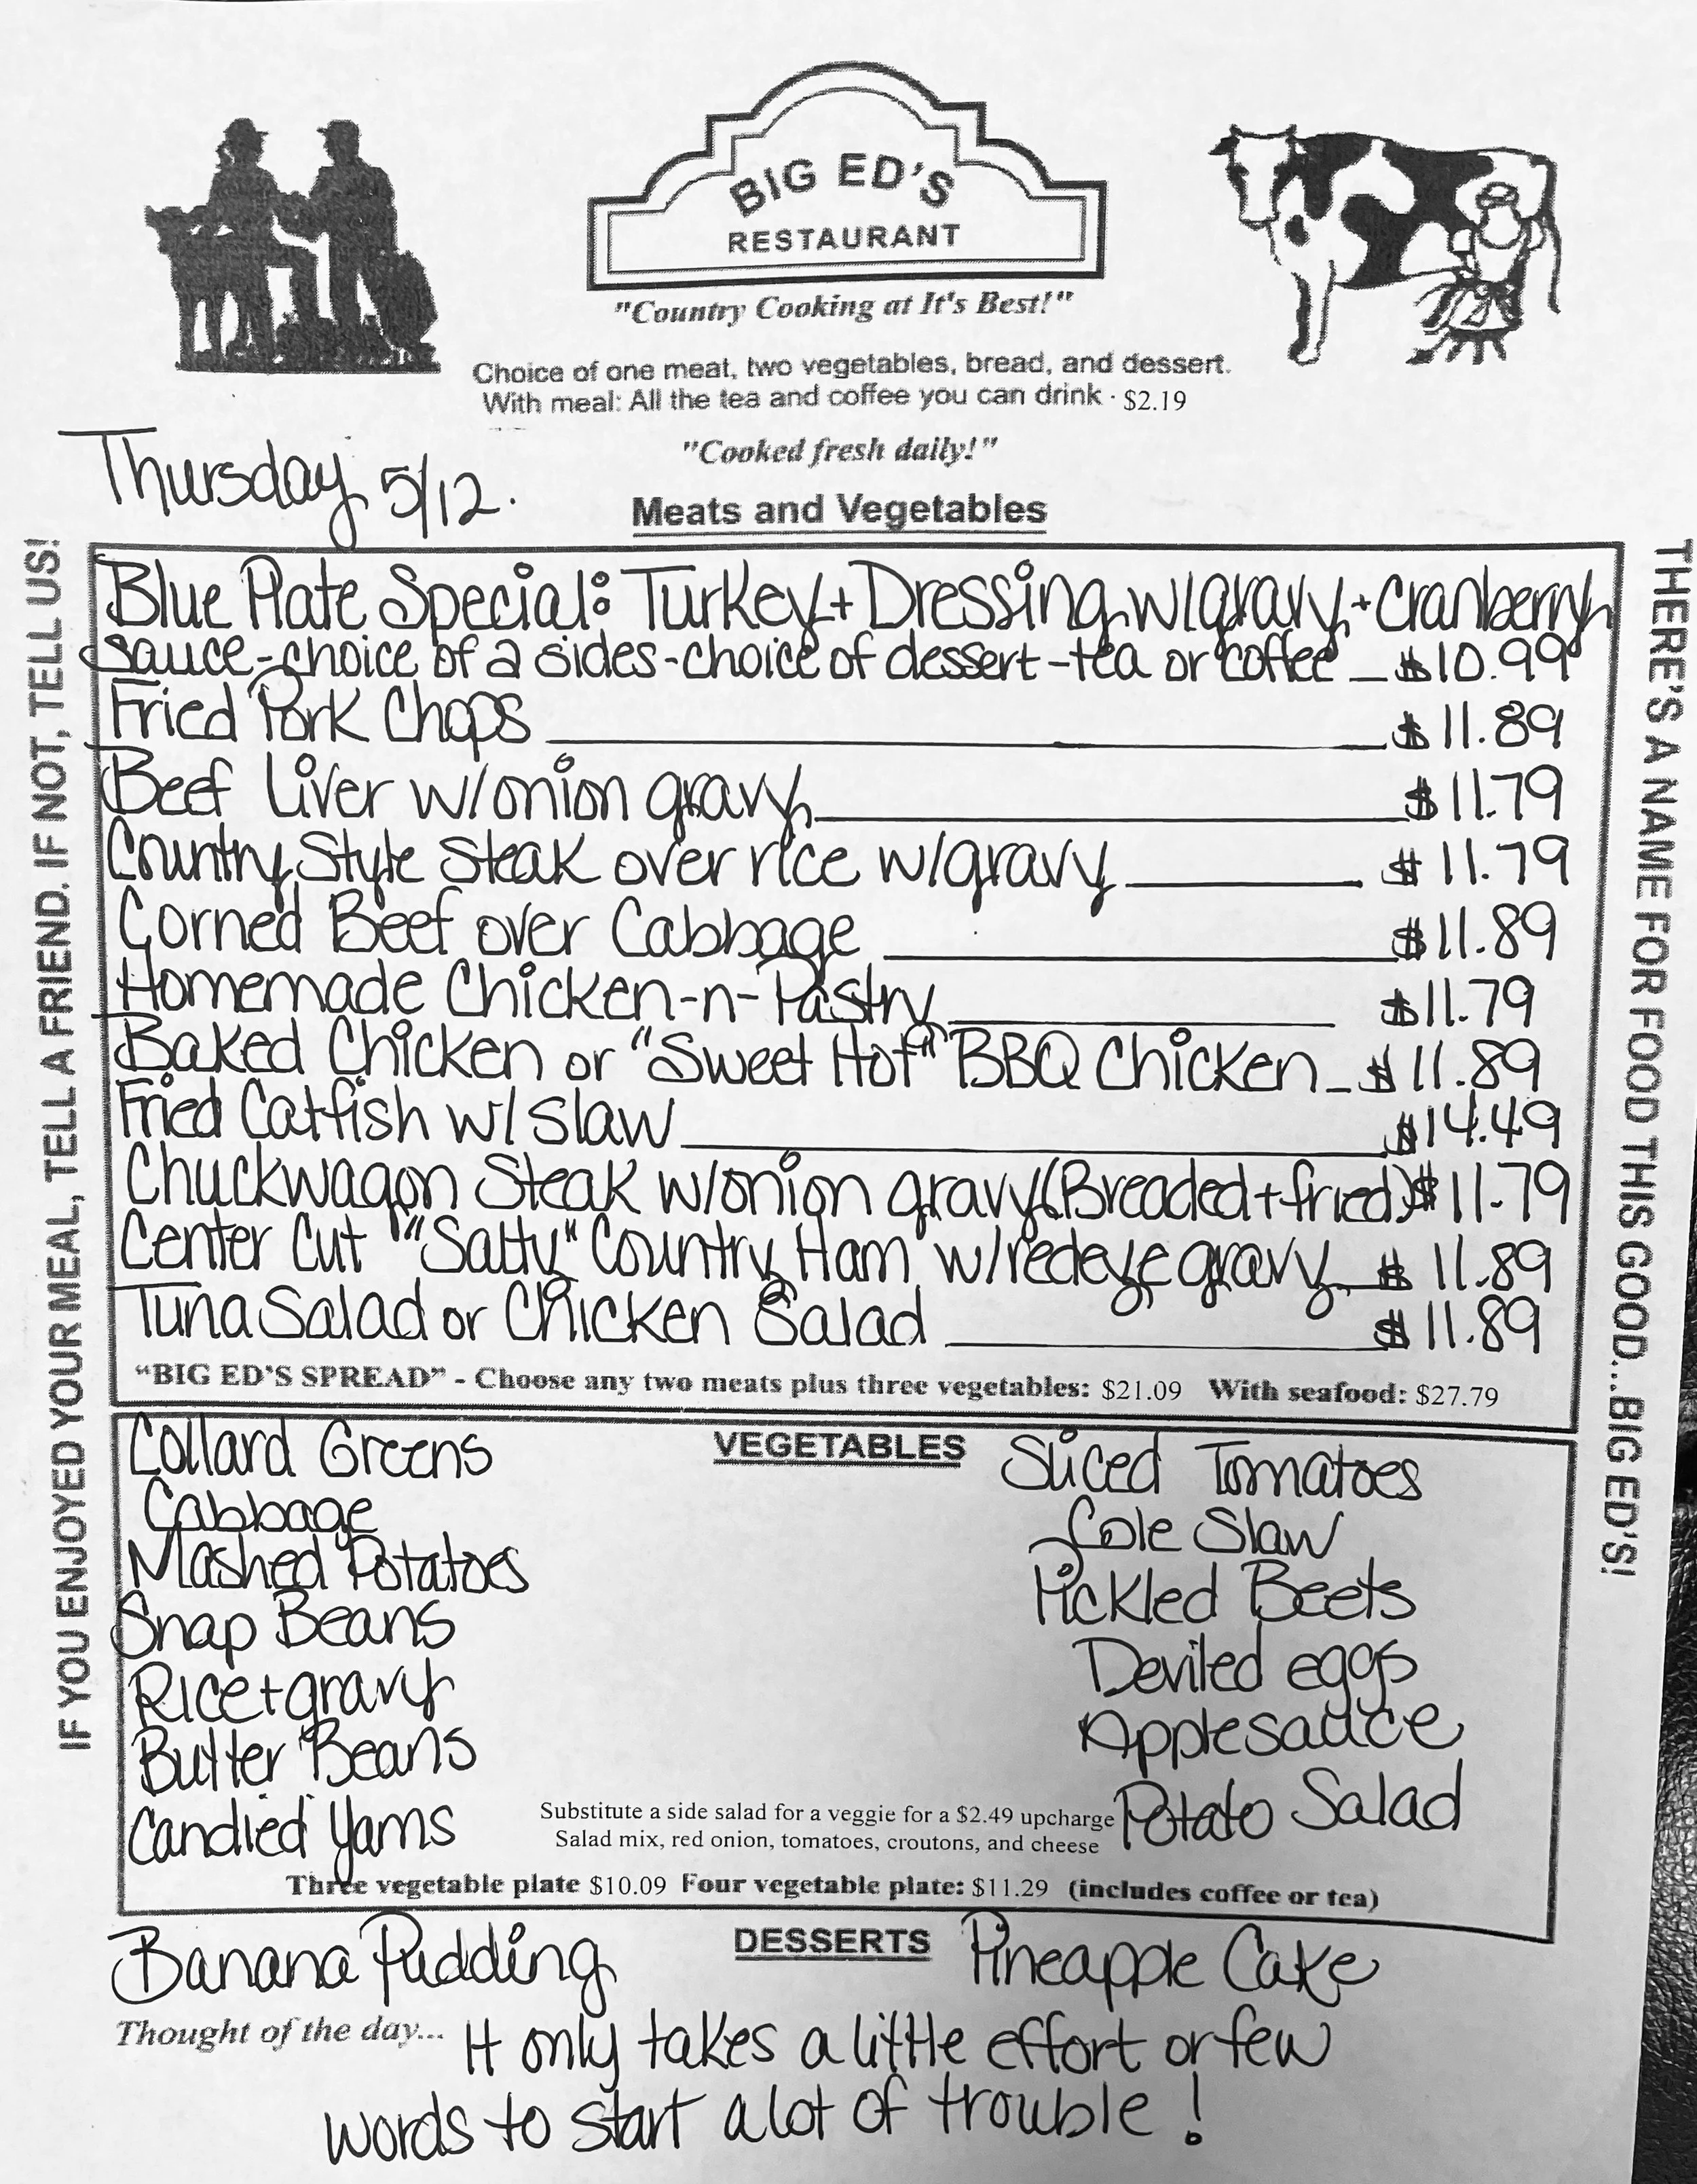 BIG ED'S
RESTAURANT
"Country Cooking at It's Best!"
Choice of one meat, two vegetables, bread, and dessert.
With meal: All the tea and coffee you can drink · $2.19
"Cooked fresh daily!"
Thursday 5/12.
Meats and Vegetables
IF YOU ENJOYED YOUR MEAL, TELL A FRIEND. IF NOT, TELL US!
THERE'S A NAME FOR FOOD THIS GOOD...BIG ED'S!
Blue Plate Special: Turkey + Dressing w/gravy + cranberry
sauce-choice of 2 sides-choice of dessert-tea or coffee _ $10.99
Fried Pork Chops $11.89
Beef Liver w/onion gravy $11.79
Country Style Steak over rice w/gravy $11.79
Corned Beef over Cabbage $11.89
Homemade Chicken-n-Pastry $11.79
Baked Chicken or "Sweet Hot" BBQ Chicken _ $11.89
Fried Catfish w/ Slaw $14.49
Chuckwagon Steak w/onion gravy (Breaded + fried) $11.79
Center Cut "Salty" Country Ham w/redeye gravy $11.89
Tuna Salad or Chicken Salad $11.89
"BIG ED'S SPREAD" - Choose any two meats plus three vegetables: $21.09 With seafood: $27.79
VEGETABLES
Collard Greens
Cabbage
Mashed Potatoes
Snap Beans
Rice + gravy
Butter Beans
Candied Yams
Sliced Tomatoes
Cole Slaw
Pickled Beets
Deviled eggs
Applesauce
Potato Salad
Substitute a side salad for a veggie for a $2.49 upcharge
Salad mix, red onion, tomatoes, croutons, and cheese
Three vegetable plate $10.09 Four vegetable plate: $11.29 (includes coffee or tea)
DESSERTS
Banana Pudding
Pineapple Cake
Thought of the day... It only takes a little effort or few
words to start a lot of trouble!